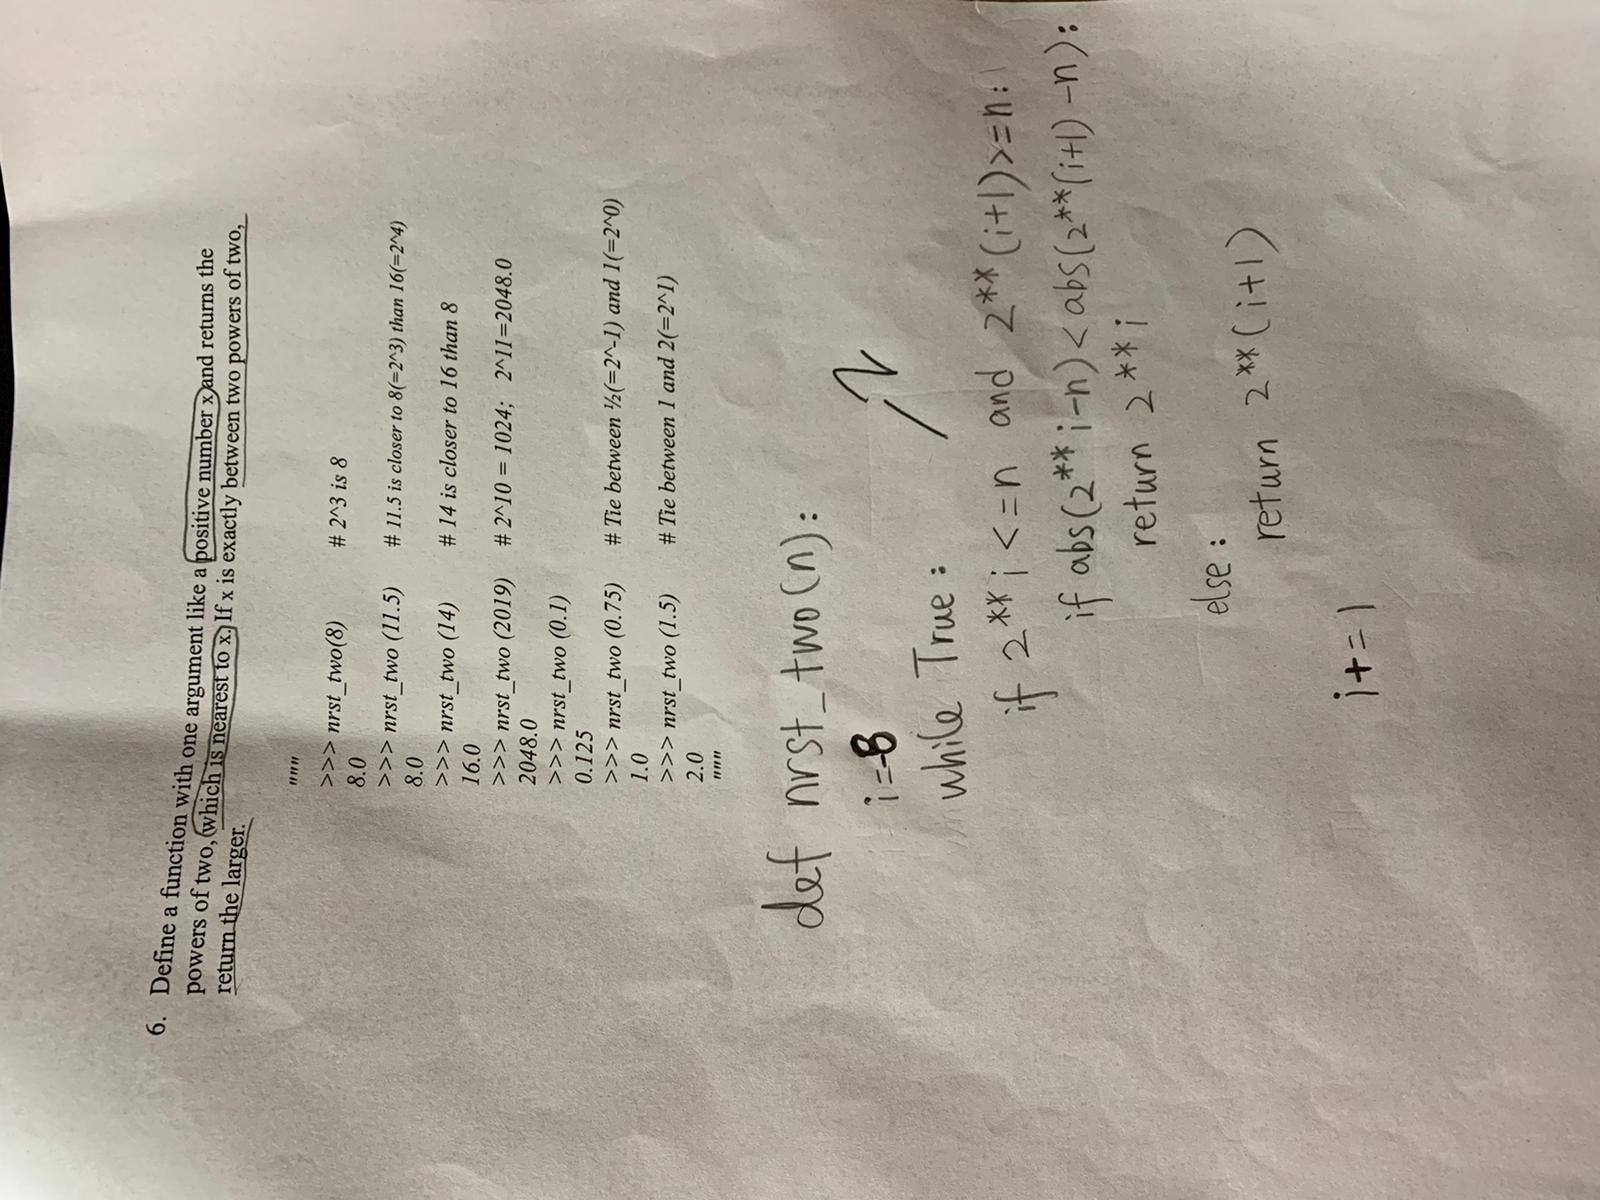 6. Define a function with one argument like a positive number x and returns the
powers of two, which is nearest to x. If x is exactly between two powers of two,
return the larger.
"""
>>> nrst_two(8) # 2^3 is 8
8.0
>>> nrst_two (11.5) # 11.5 is closer to 8(=2^3) than 16(=2^4)
8.0
>>> nrst_two (14) # 14 is closer to 16 than 8
16.0
>>> nrst_two (2019) # 2^10 = 1024; 2^11=2048.0
2048.0
>>> nrst_two (0.1)
0.125
>>> nrst_two (0.75) # Tie between ½(=2^-1) and 1(=2^0)
1.0
>>> nrst_two (1.5) # Tie between 1 and 2(=2^1)
2.0
"""
def nrst_two(n):
i=-8
while True:
if 2**i <=n and 2**(i+1)>=n:
if abs(2**i-n)<abs(2**(i+1)-n):
return 2**i
else:
return 2**(i+1)
i+=1